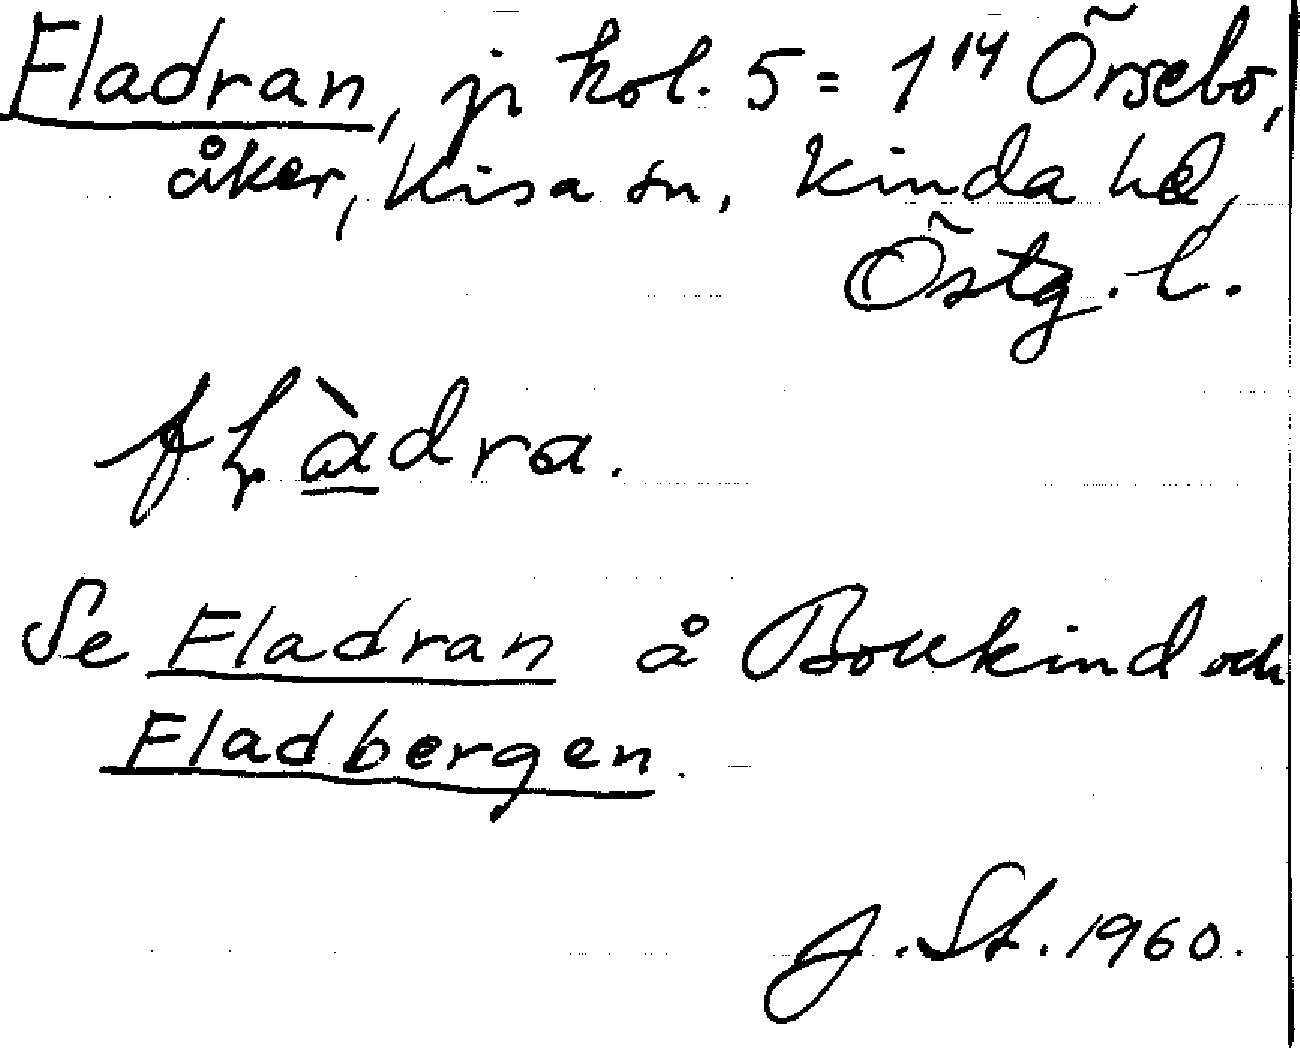 Fladran, jr kol. 5 = 1¹⁴ Örsebo,
åker, Kisa sn, Kinda hd,
Östg. l.
flàdra.
Se Fladran å Boukind och
Fladbergen.
J. St. 1960.